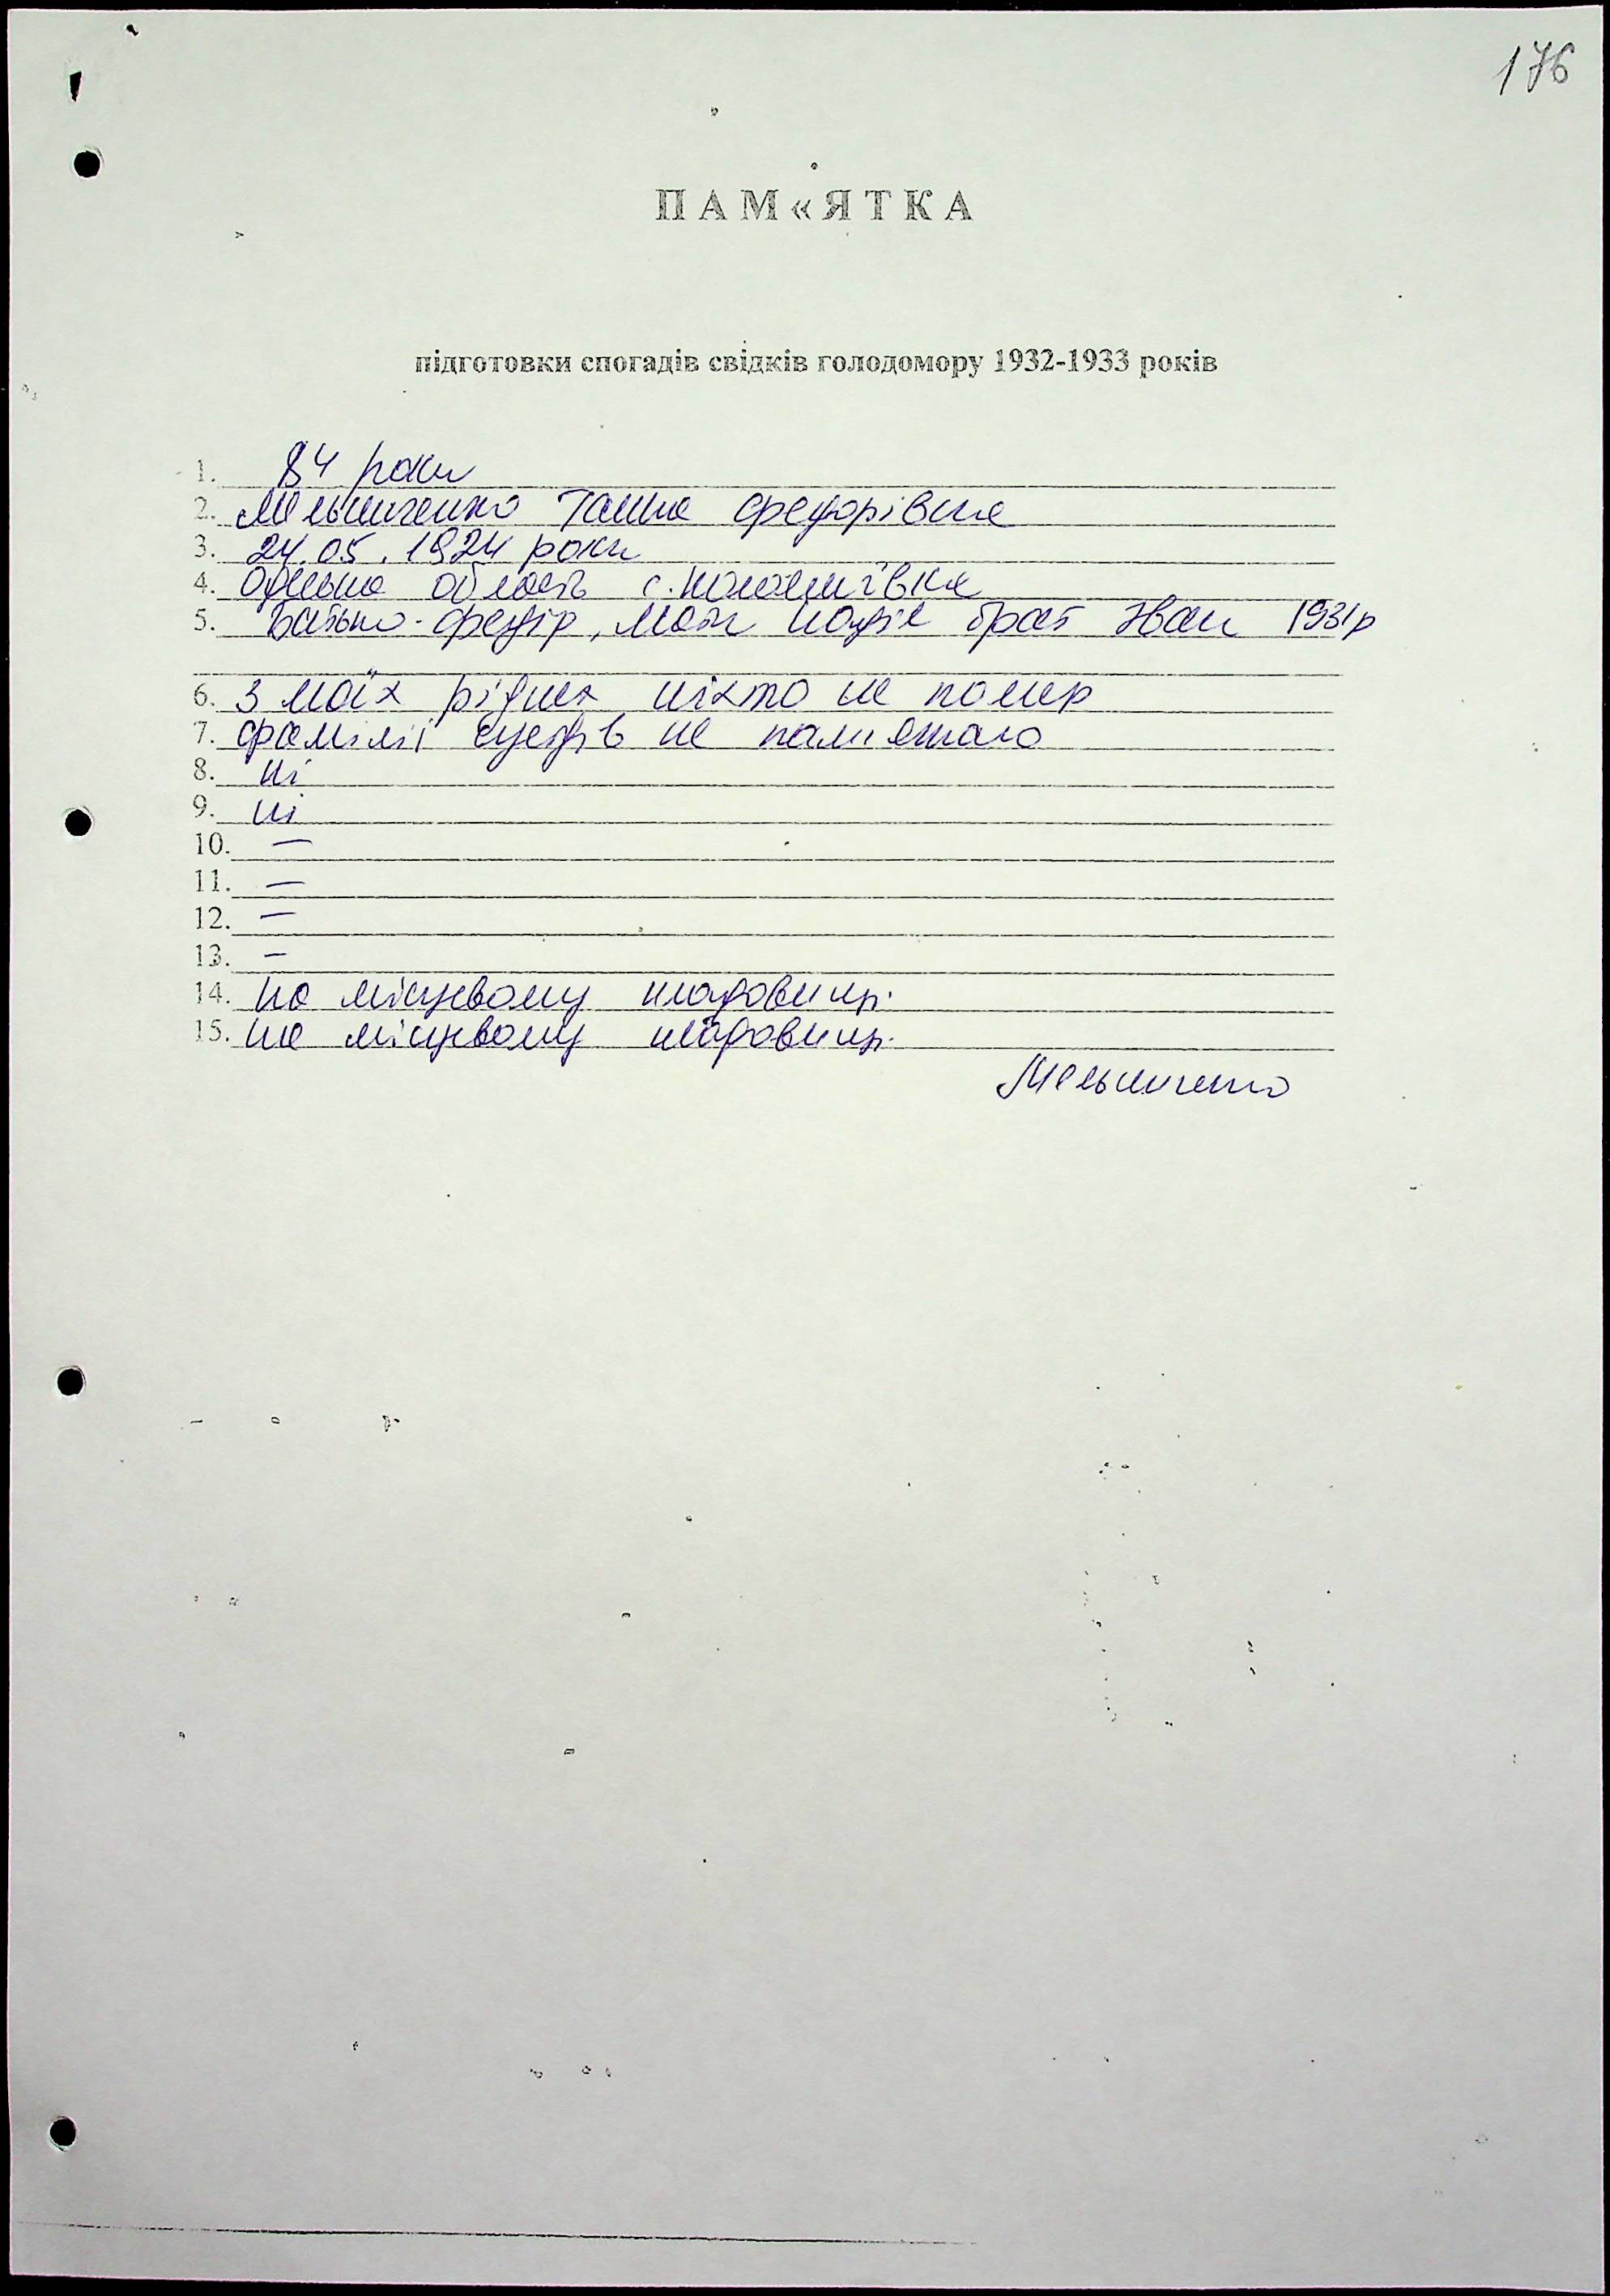 176
ПАМ«ЯТКА
підготовки спогадів свідків голодомору 1932-1933 років
1. 84 роки
2. Мельниченко Ганна Федорівна
3. 24.05.1924 роки
4. область с.
5. Батько - Федір, мати Надія брат Іван 1931р
6. З моїх рідних ніхто не помер
7. Фамілії сусідів не памятаю
8. ні
9. ні
10. —
11. —
12. —
13. —
14. на місцевому кладовищі.
15. на місцевому кладовищі.
Мельниченко